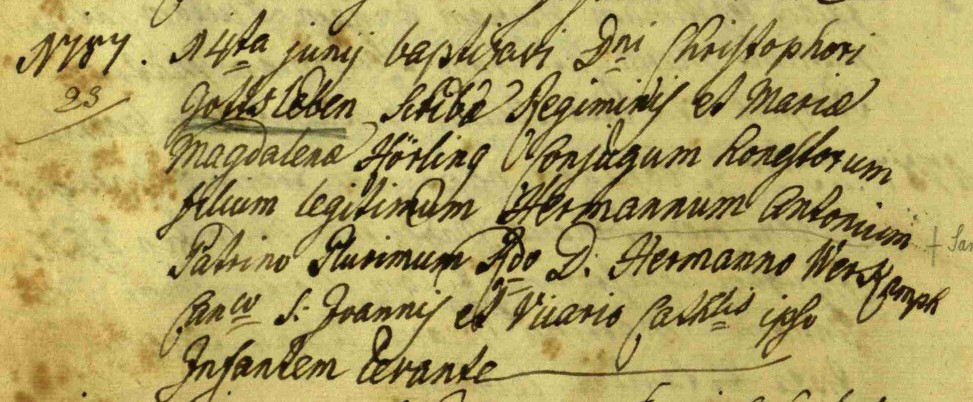 N 787. N 4ta junij baptizavi Dni Christophori
23 Gottsleben Scribæ Regiminis et Mariæ
Magdalenæ Hörling Conjugum honestorum
filium legitimum Hermannum Antonium
Patrino Plurimum Rdo D: Hermanno Werkamph
Canco S: Joannis et Vicario Cathlis ipso
Infantem levante